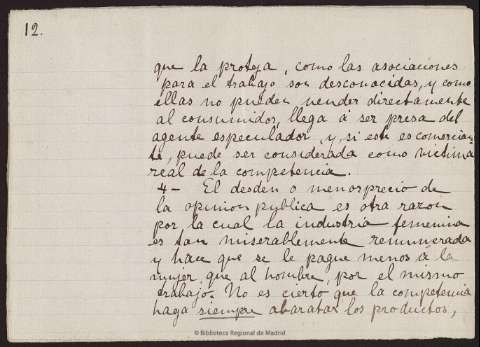 12.
que la proteja, como las asociaciones
para el trabajo son desconocidas, y como
ellas no pueden vender directamente
al consumidor, llega á ser presa del
agente especulador, y, si este es comercian-
te, puede ser considerada como victima
real de la competencia.
4- El desden o menosprecio de
la opinion publica es otra razon
por la cual la industria femenina
es tan miserablemente renumerada
y hace que se le pague menos á la
mujer que al hombre, por el mismo
trabajo. No es cierto que la competencia
haga siempre abaratar los productos,
© Biblioteca Regional de Madrid